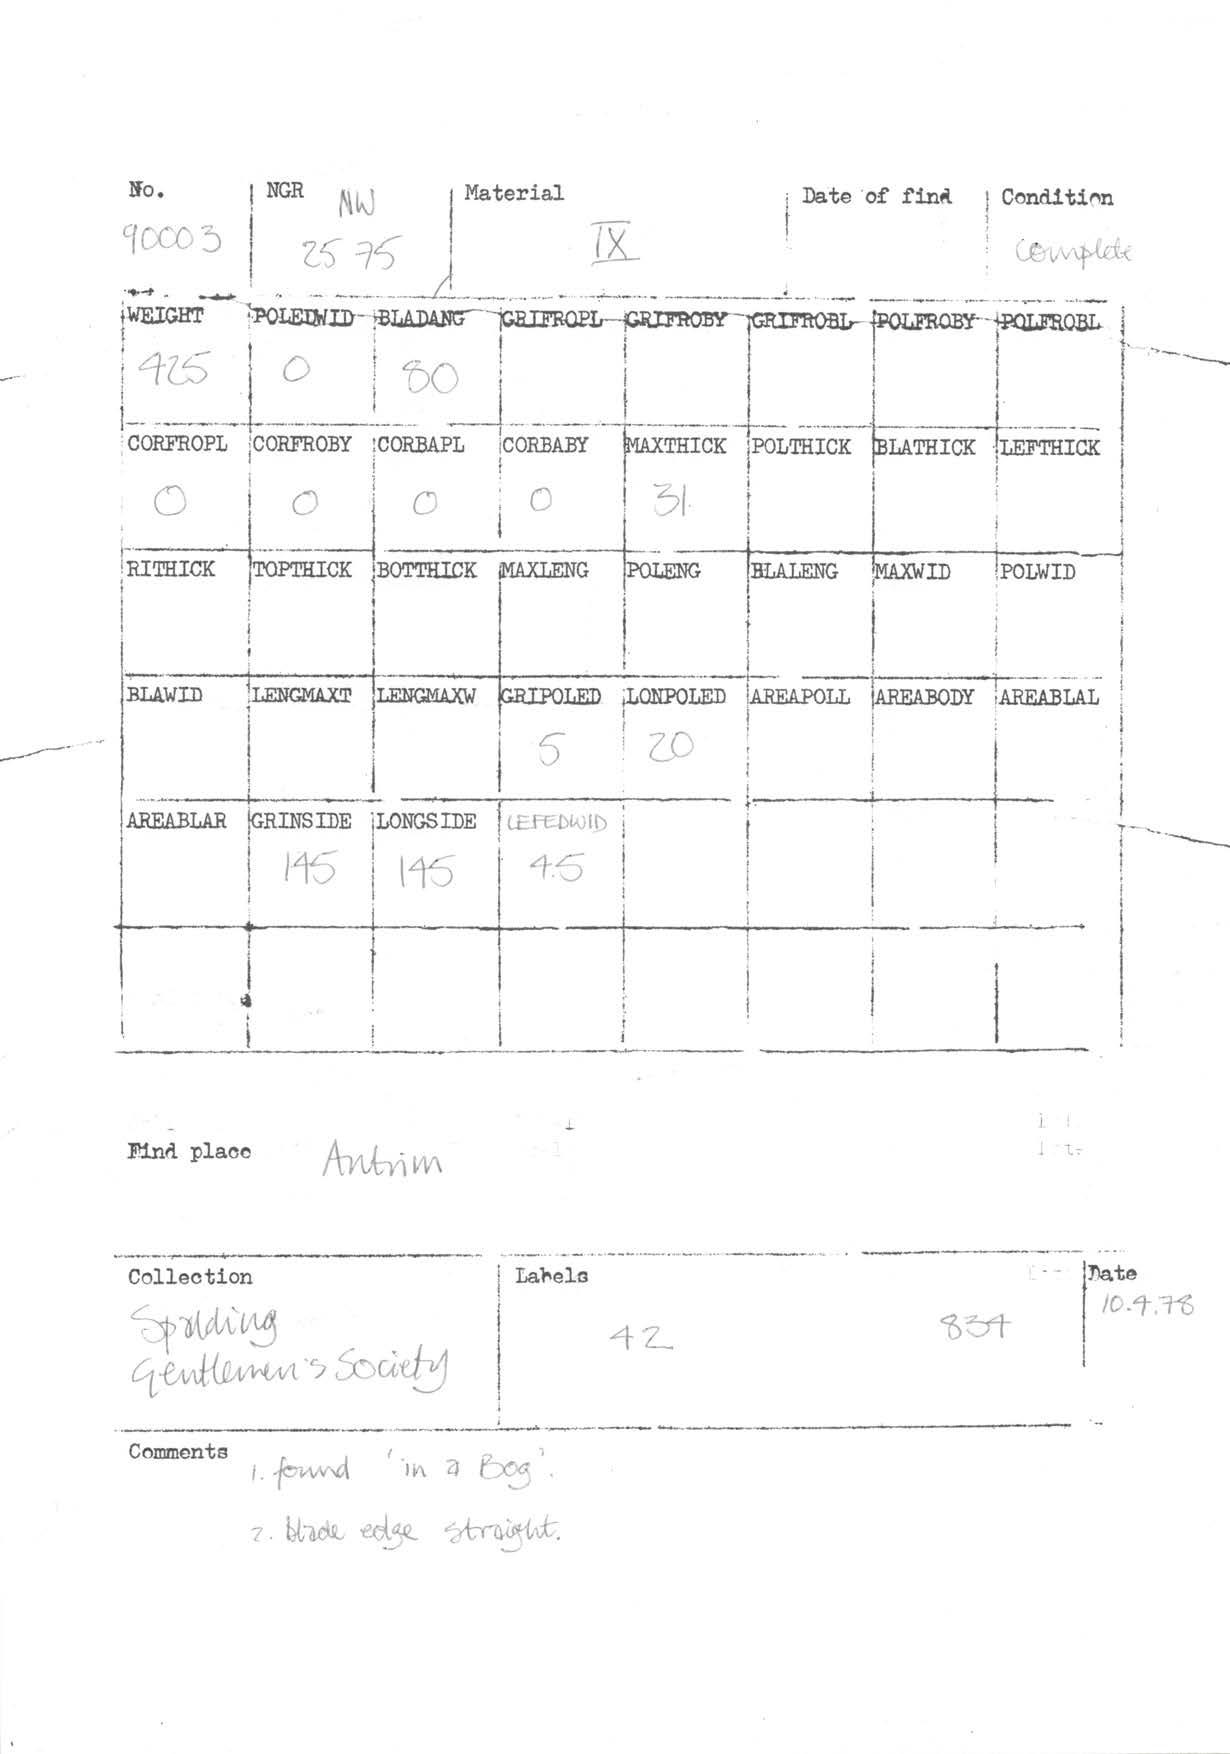 No. NGR NW Material Date of find Condition
90003 25 75 IX complete
WEIGHT POLEDWID BLADANG GRIFROPL GRIFROBY GRIFROBL POLFROBY POLFROBL
425 0 80
CORFROPL CORFROBY CORBAPL CORBABY MAXTHICK POLTHICK BLATHICK LEFTHICK
0 0 0 0 31
RITHICK TOPTHICK BOTTHICK MAXLENG POLENG BLALENG MAXWID POLWID
BLAWID LENGMAXT LENGMAXW GRIPOLED LONPOLED AREAPOLL AREABODY AREABLAL
5 20
AREABLAR GRINSIDE LONGSIDE LEFEDWID
145 145 4.5
Find place Antrim
Collection Labels Date
Spalding 42 834 10.4.78
Gentlemen's Society
Comments 1. found 'in a Bog'.
2. blade edge straight.